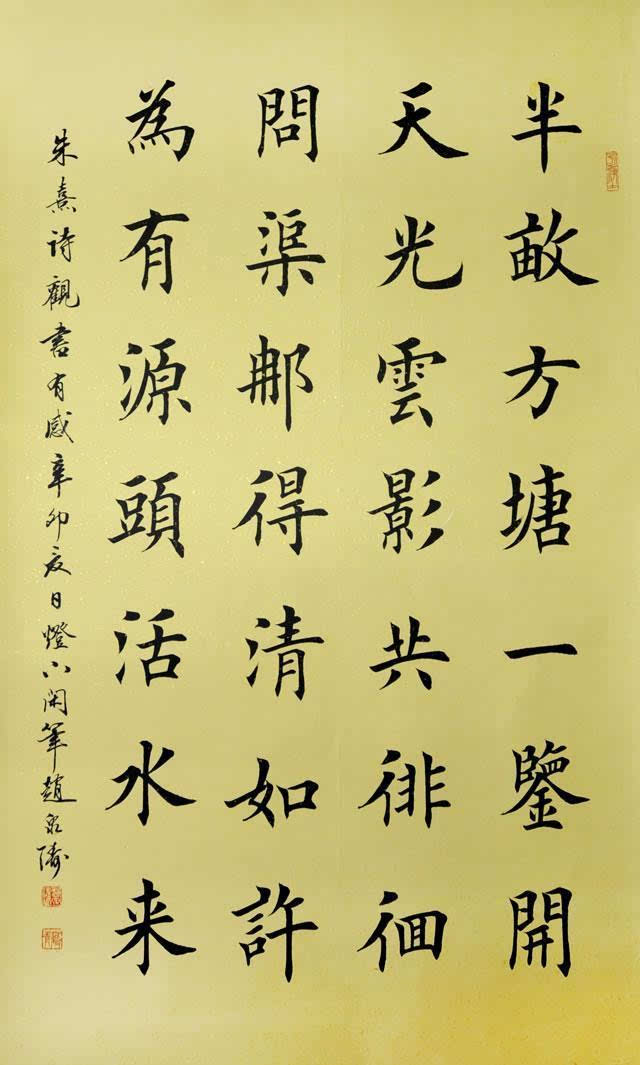 半畝方塘一鑒開
天光雲影共徘徊
問渠那得清如許
為有源頭活水来
朱熹诗觀書有感辛卯夏日燈下闲筆趙